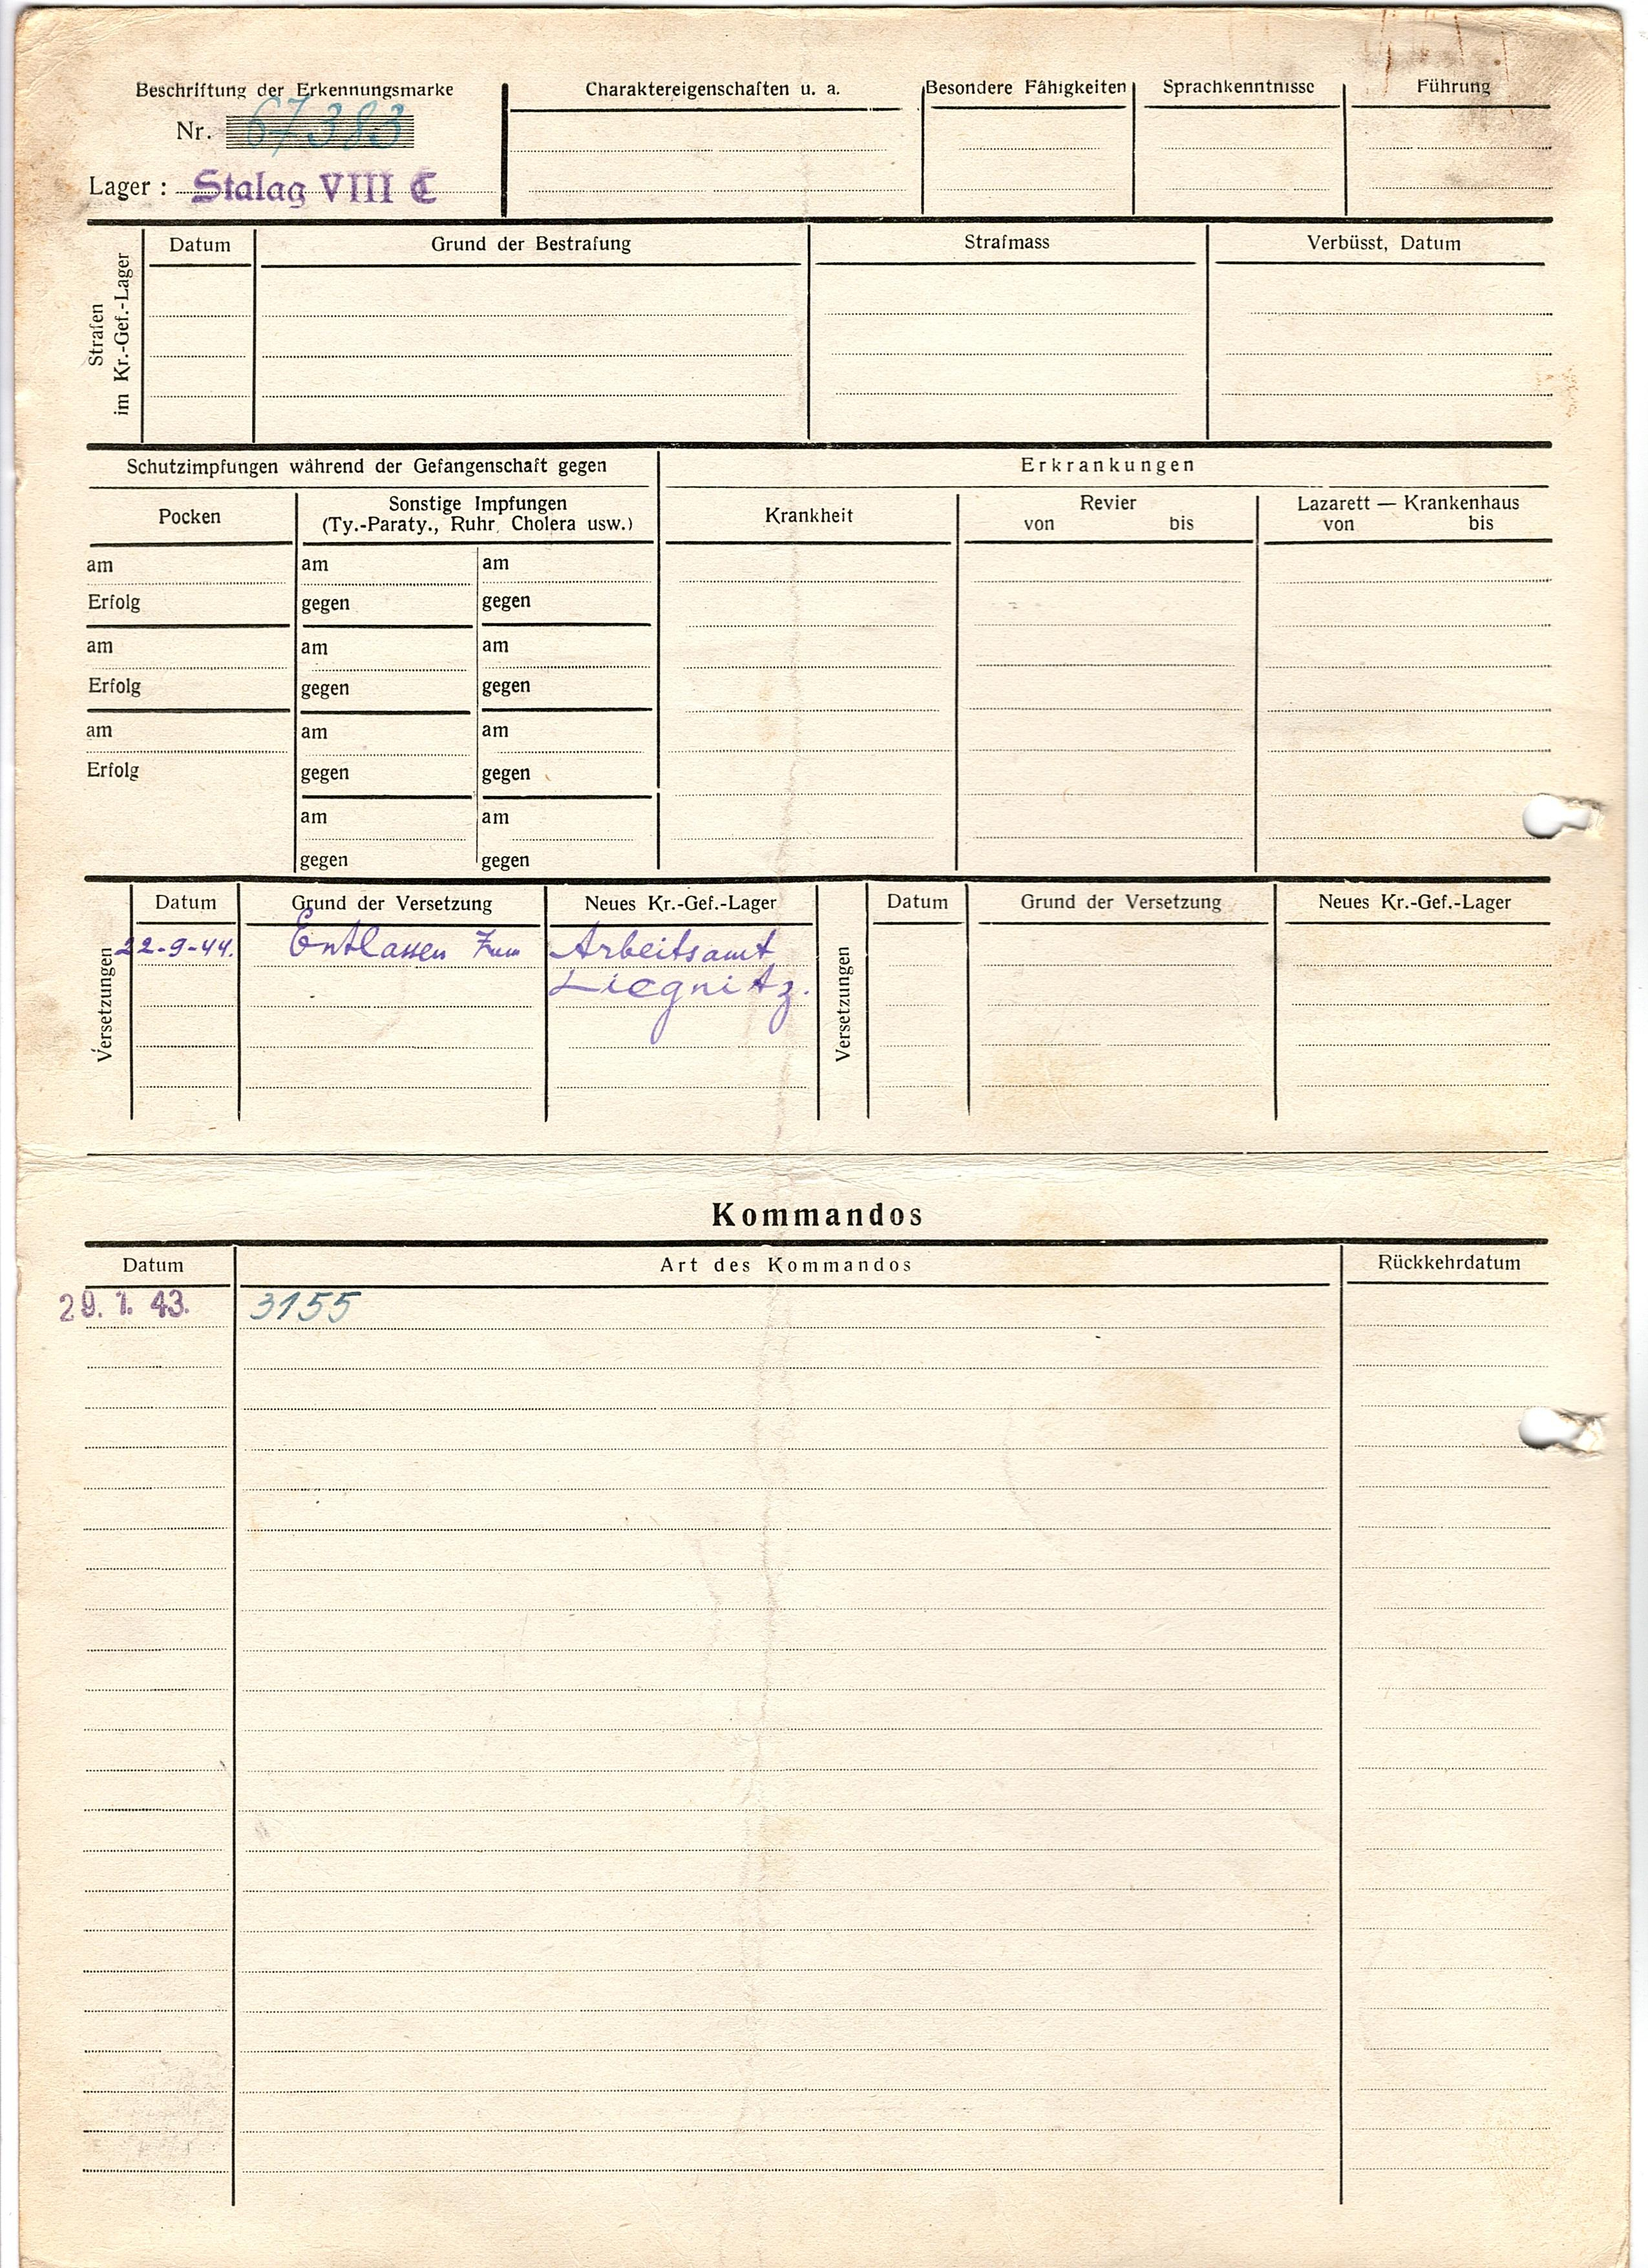 Beschriftung der Erkennungsmarke
Nr. 67383
Lager : Stalag VIII C
Charaktereigenschaften u. a.
Besondere Fähigkeiten
Sprachkenntnisse
Führung
Strafen
im Kr.-Gef.-Lager
Datum
Grund der Bestrafung
Strafmass
Verbüsst, Datum
Schutzimpfungen während der Gefangenschaft gegen
Erkrankungen
Pocken
Sonstige Impfungen
(Ty.-Paraty., Ruhr, Cholera usw.)
Krankheit
Revier
von bis
Lazarett — Krankenhaus
von bis
am am am
Erfolg gegen gegen
am am am
Erfolg gegen gegen
am am am
Erfolg gegen gegen
am am
gegen gegen
Versetzungen
Datum Grund der Versetzung Neues Kr.-Gef.-Lager
22-9-44. Entlassen zum Arbeitsamt
Liegnitz.
Versetzungen
Datum Grund der Versetzung Neues Kr.-Gef.-Lager
Kommandos
Datum Art des Kommandos Rückkehrdatum
29. 1. 43. 3155